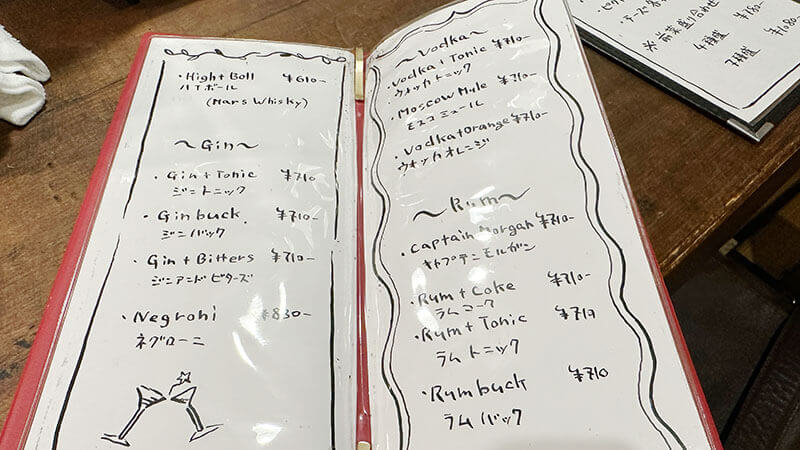 ・High+Boll ¥610-
ハイボール
(Mars Whisky)
～Gin～
・Gin+Tonic ¥710
ジントニック
・Ginbuck ¥710-
ジンバック
・Gin+Bitters ¥710-
ジンアンドビターズ
・Negroni ¥830-
ネグローニ
～Vodka～
・Vodka+Tonic ¥710-
ウォッカトニック
・Moscow Mule ¥710-
モスコミュール
・Vodka+Orange ¥710-
ウォッカオレンジ
～Rum～
・Captain Morgan ¥710-
キャプテンモルガン
・Rum+Coke ¥710-
ラムコーク
・Rum+Tonic ¥710
ラムトニック
・Rumbuck ¥710
ラムバック
・チーズ
※前菜盛り合わせ
4種盛
7種盛 ¥1,080